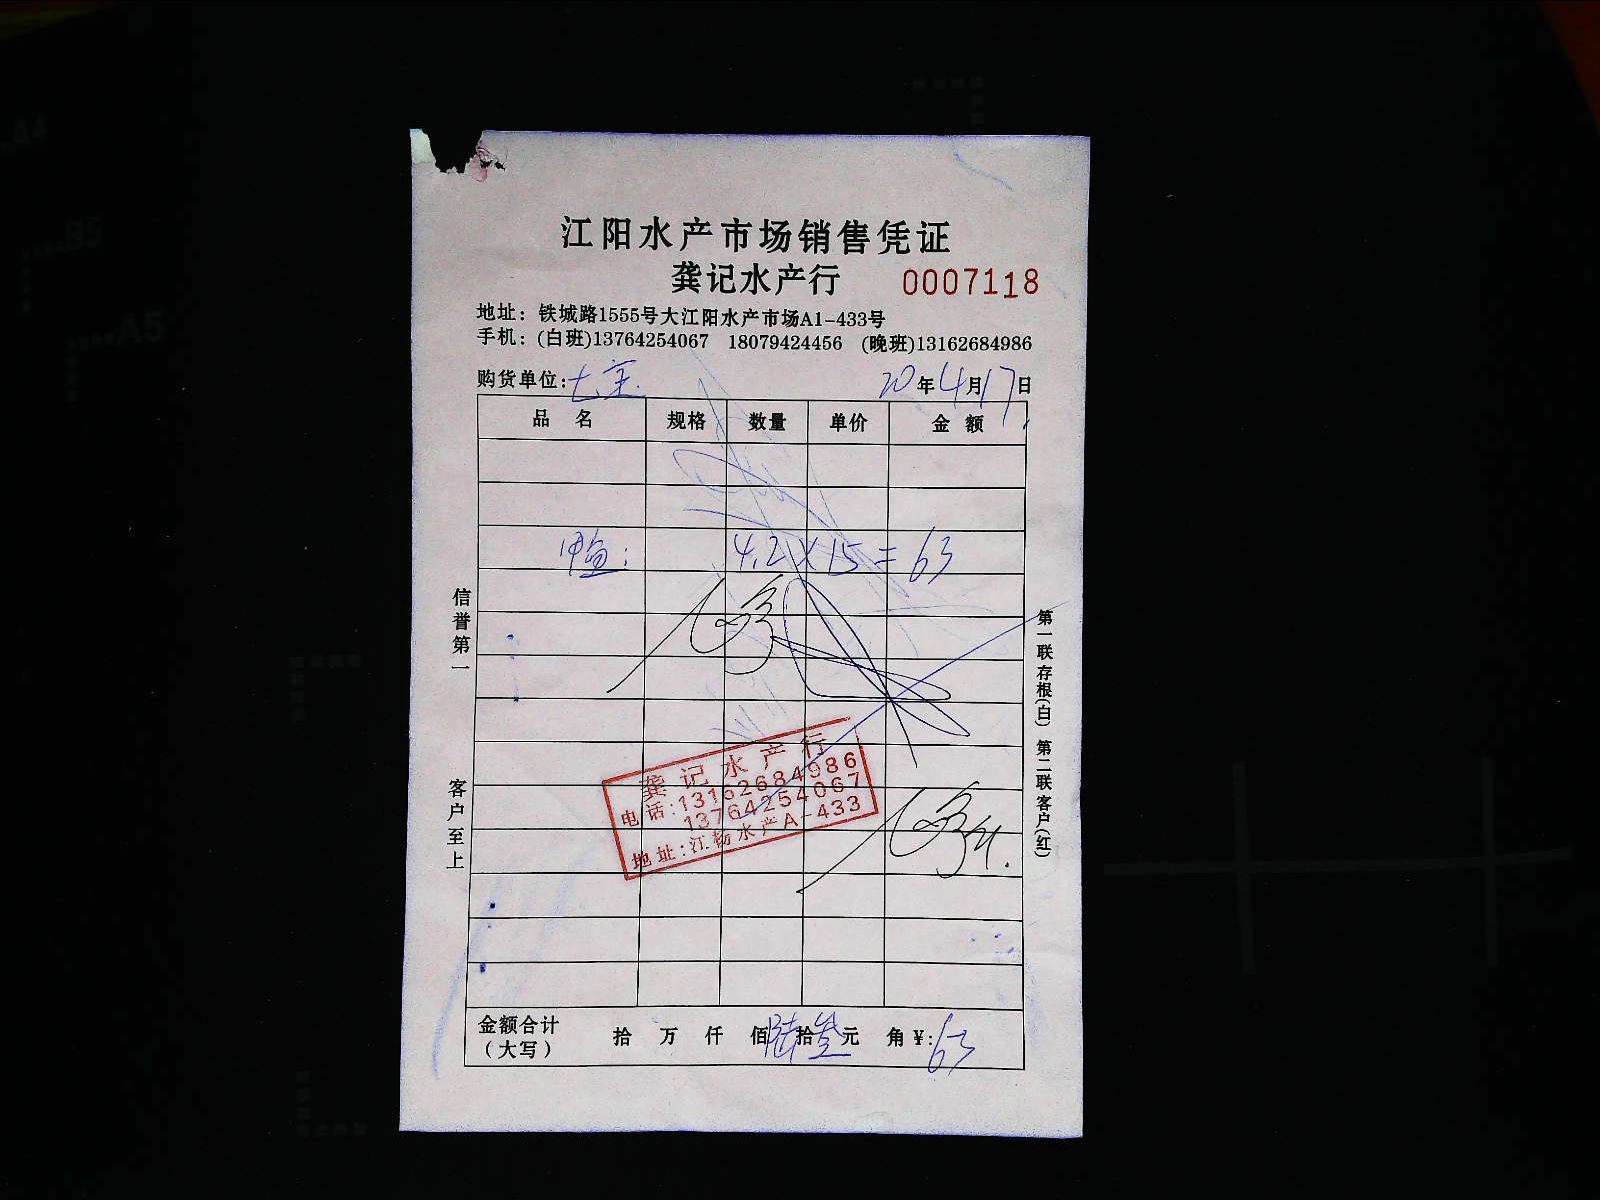 江阳水产市场销售凭证
龚记水产行 0007118
地址：铁城路1555号大江阳水产市场A1-433号
手机：(白班)13764254067 18079424456 (晚班)13162684986
购货单位：七宝 20年4月17日
品名 规格 数量 单价 金额
4.2×15=63
信誉第一
客户至上
第一联存根(白) 第二联客户(红)
龚记水产行
电话：13162684986
13764254067
地址：江杨水产A-433
金额合计 拾 万 仟 佰陆拾叁元 角¥：63
（大写）
A4
B5
A5